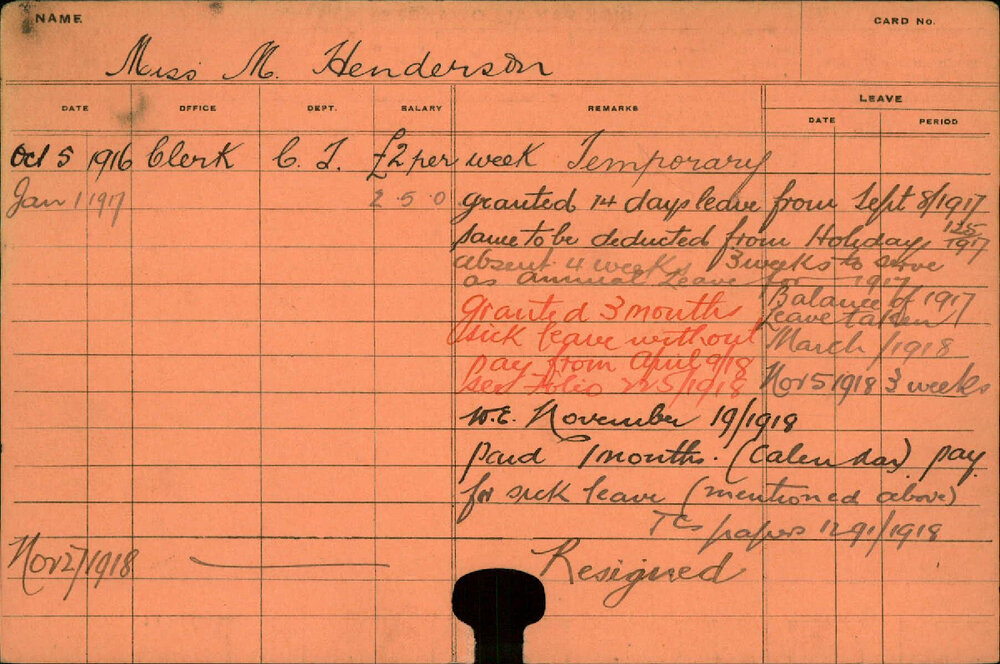 NAME
CARD No.
Miss M. Henderson
DATE OFFICE DEPT. SALARY REMARKS LEAVE
DATE PERIOD
Oct 5 1916 Clerk C. T. £2 per week Temporary
Jan 1 1917 2 5 0 granted 14 days leave from Sept 8/1917
same to be deducted from Holidays 125/1917
absent 4 weeks 3 weeks to serve
as annual Leave for 1917
granted 3 months Balance of 1917
Leave taken
sick leave without March /1918
pay from April 9/18
see Folio 225/1918 Nov 5 1918 3 weeks
W.E. November 19/1918
paid 1 months. (Calendar) pay
for sick leave (mentioned above)
TCs papers 1291/1918
Nov 27/1918 Resigned